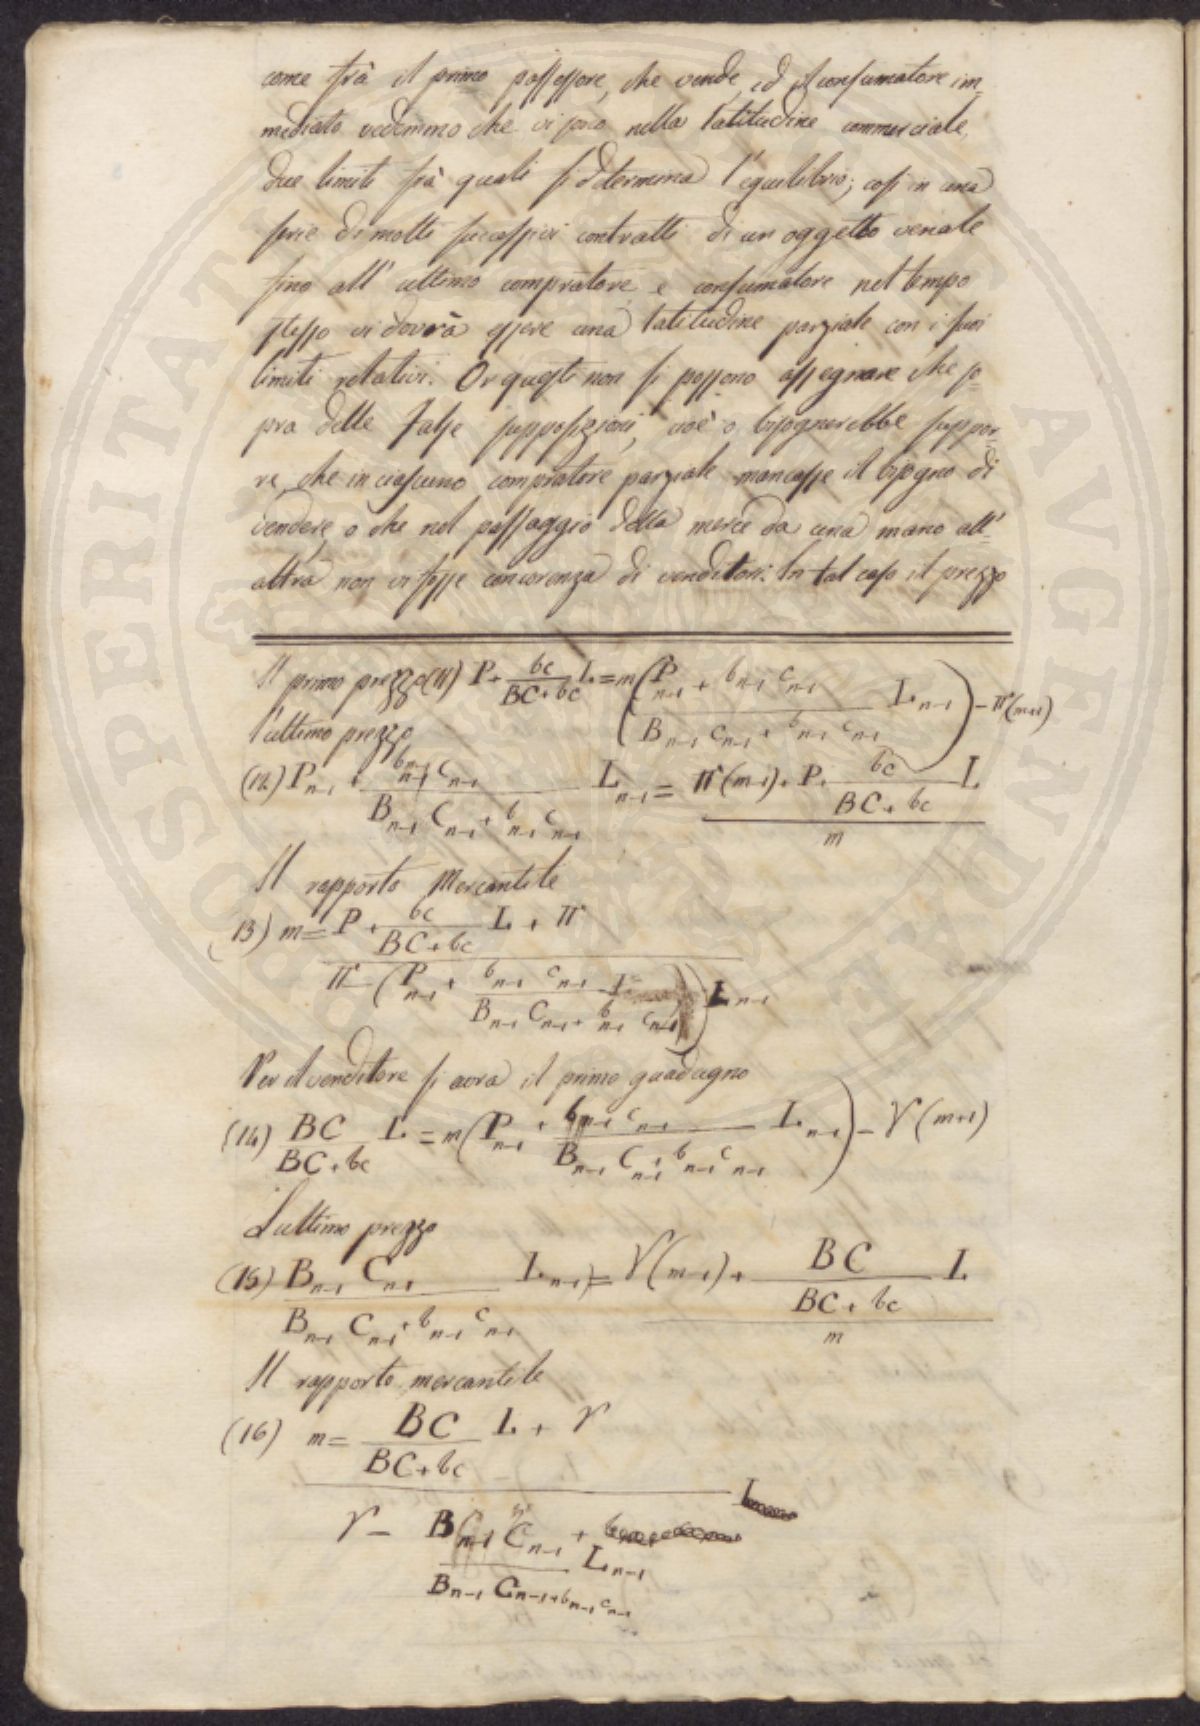 come frà il primo possessore, che vende, ed il consumatore im-
mediato vedemmo che vi sono nella latitudine commerciale,
due limiti frà quali si determina l'equilibrio; così in una
serie di molti successivi contratti di un oggetto venale
fino all' ultimo compratore, e consumatore nel tempo
stesso vi dovrà essere una latitudine parziale con i suoi
limiti relativi. Or questi non si possono assegnare che so-
pra delle false supposizioni, cioè o bisognerebbe suppor-
re, che in ciascuno compratore parziale mancasse il bisogno di
vendere, o che nel passaggio della merce da una mano all'
altra non vi fosse concorenza di venditori. In tal caso il prezzo
Il primo prezzo (11) P + bc / BC + bc L = m ( P n-1 + b n-1 c n-1 / B n-1 C n-1 + b n-1 c n-1 L n-1 ) - π (m+1)
l'ultimo prezzo
(12) P n-1 + b n-1 c n-1 / B n-1 C n-1 + b n-1 c n-1 L n-1 = π (m-1) + P + bc / BC + bc L / m
Il rapporto Mercantile
(13) m = P + bc / BC + bc L + π / π - ( P n-1 + b n-1 c n-1 / B n-1 C n-1 + b n-1 c n-1 ) L n-1
Per il venditore si avrà il primo guadagno
(14) BC / BC + bc L = m ( P n-1 + b n-1 c n-1 / B n-1 C n-1 + b n-1 c n-1 L n-1 ) - γ (m+1)
L'ultimo prezzo
(15) B n-1 C n-1 / B n-1 C n-1 + b n-1 c n-1 L n-1 ) = γ (m-1) + BC / BC + bc L / m
Il rapporto mercantile
(16) m = BC / BC + bc L + γ / γ - B n-1 C n-1 + / B n-1 C n-1 + b n-1 c n-1 L n-1
PROSPERITATI AVGENDAE